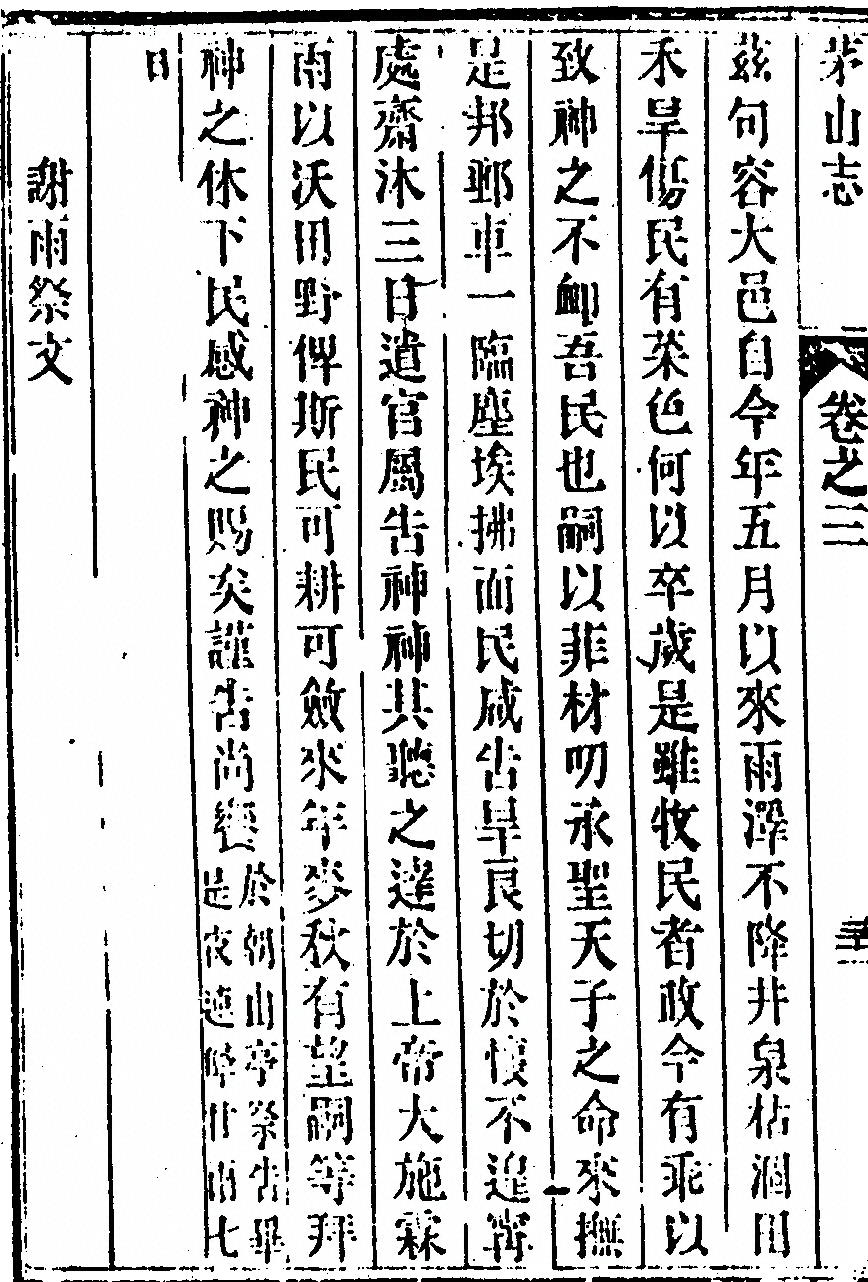 茅山志 卷之三
玆句容大邑自今年五月以來雨澤不降井泉枯涸田
禾旱傷民有菜色何以卒歲是雖牧民者政令有乖以
致神之不衈吾民也嗣以菲材叨承聖天子之命來撫
是邦郵車一臨塵埃拂面民咸告旱良切於懷不遑寧
處齋沐三日遣官屬告神神其聽之達於上帝大施霖
雨以沃田野俾斯民可耕可斂來年麥秋有望嗣等拜
神之休下民感神之賜矣謹告尚饗於朝山亭祭告畢是夜連降甘雨七
日
謝雨祭文